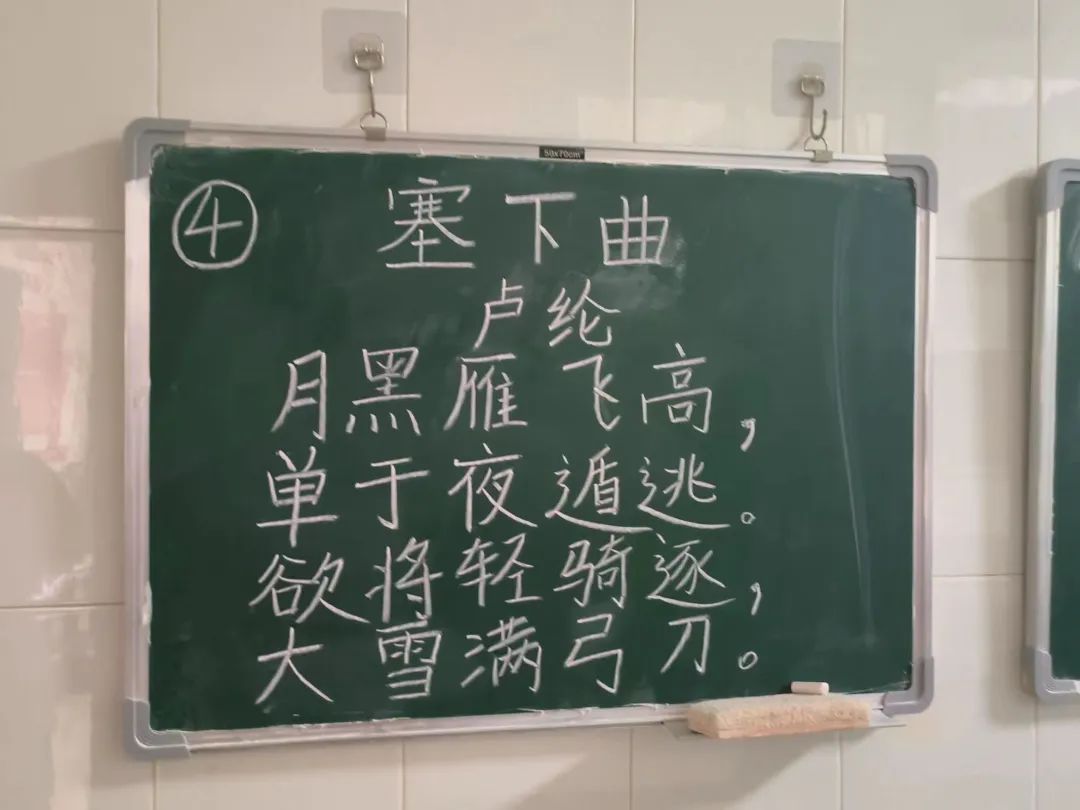 50x70cm
④ 塞下曲
卢纶
月黑雁飞高，
单于夜遁逃。
欲将轻骑逐，
大雪满弓刀。